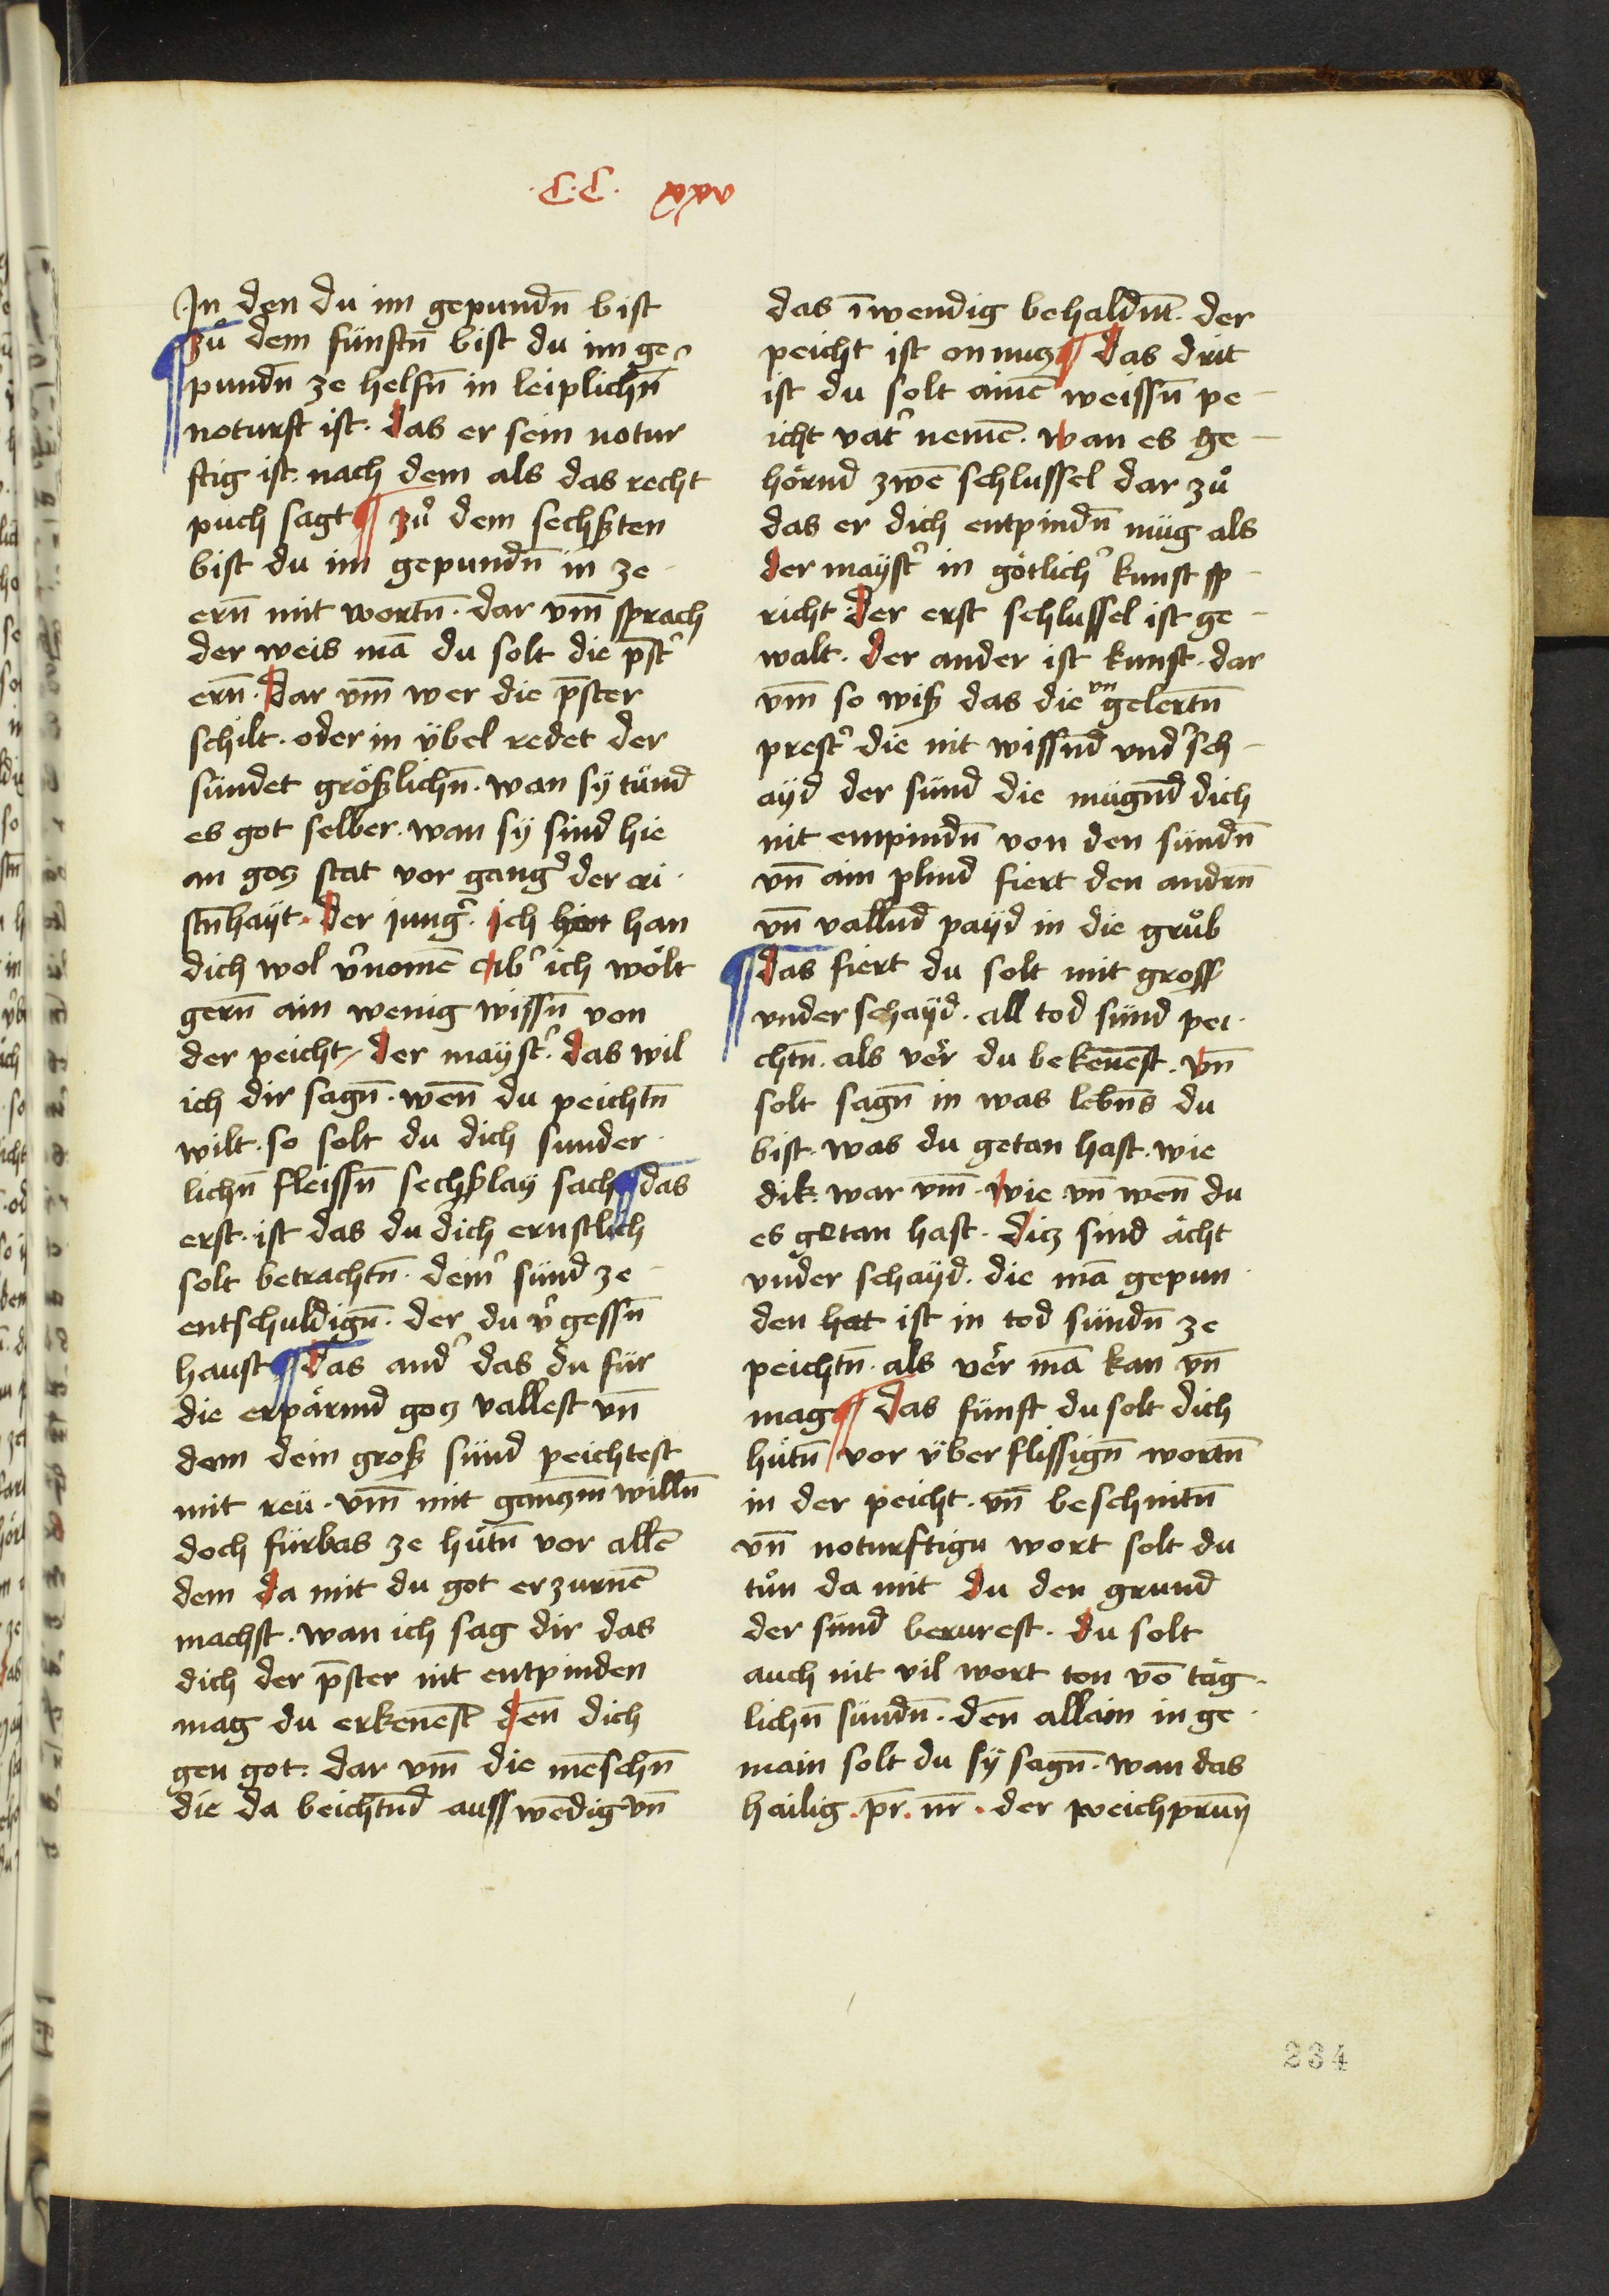 .C.C. xxxv
In den du im gepundn̄ bist
¶ zů dem fünftn̄ bist du im ge-
pundn̄ ze helfn̄ in leiplichn̄
noturft ist. das er sein notur
ftig ist. nach dem als das recht
puch sagt ¶ zů dem sechsten
bist du im gepundn̄ in ze-
ern̄ mit wortn̄. dar vm̄ sprach
der weis mā du solt die p̄st͛
ern̄. Dar vm̄ wer die p̄ster
schilt. oder in v̈bel redet der
sündet größlichn̄. wan sy tünd
es got selber. wan sy sind hie
an gocz stat vor gang͛ der cri-
stn̄hayt. Der jung͛. Ich han
dich wol v͛nomē Ab͛ ich wölt
gern̄ ain wenig wissn̄ von
der peicht. der mayst͛. das wil
ich dir sagn̄. wen̄ du peichtn̄
wilt. so solt du dich sunder-
lichn̄ fleissn̄ sechslay sach ¶ das
erst. ist das du dich ernstlich
solt betrachtn̄. dein͛ sünd ze-
entschuldign̄. der du v͛gessn̄
haust ¶ das and͛ das du für
die erpärmd gocz vallest vn̄
dem dein groß sünd peichtest
mit reü. vm̄ mit ganczm̄ willn̄
doch fürbas ze hütn̄ vor allē
dem da mit du got erzurnē
machst. wan ich sag dir das
dich der p̄ster nit entpinden
mag du erkenest den̄ dich
gen got: dar vm̄ die mēschn̄
die da beichtnd auss wēdig vn̄
das īwendig behaldnt. der
peicht ist on nucz ¶ das drit
ist du solt ainē weissn̄ pe-
icht vat͛ nemē. wan es ge-
hörnd zwē schlussel dar zů
das er dich entpindn̄ müg als
der mayst͛ in götlich͛ kunst sp-
richt. Der erst schlussel ist ge-
walt. der ander ist kunst. dar
vm̄ so wiß das die vn gelertn̄
prest͛ die nit wissnd vnd͛sch-
ayd der sünd die mügnd dich
nit enpindn̄ von den sündn̄
vn̄ ain plind fiert den andrn̄
vn̄ vallnd payd in die grůb
¶ das fiert du solt mit gross
vnder schayd. all tod sünd pei-
chtn̄. als ver du bekēnest. vn̄
solt sagn̄ in was lebn̄s du
bist. was du getan hast. wie
dik. war vm̄. wie vn̄ wen̄ du
es getan hast. dicz sind ächt
vnder schayd. die mā gepun-
den hat ist in tod sündn̄ ze
peichtn̄. als ver mā kan vn̄
mag ¶ das fünft du solt dich
hütn̄ vor v̈ber flissign̄ wortn̄
in der peicht. vn̄ beschnitn̄
vn̄ noturftign wort solt du
tůn da mit du den grund
der sünd berurest. du solt
auch nit vil wort ton vō täg-
lichn̄ sündn̄. den̄ allain in ge-
main solt du sy sagn̄. wan das
hailig. pr̄. nr̄. der weichprun̄
234